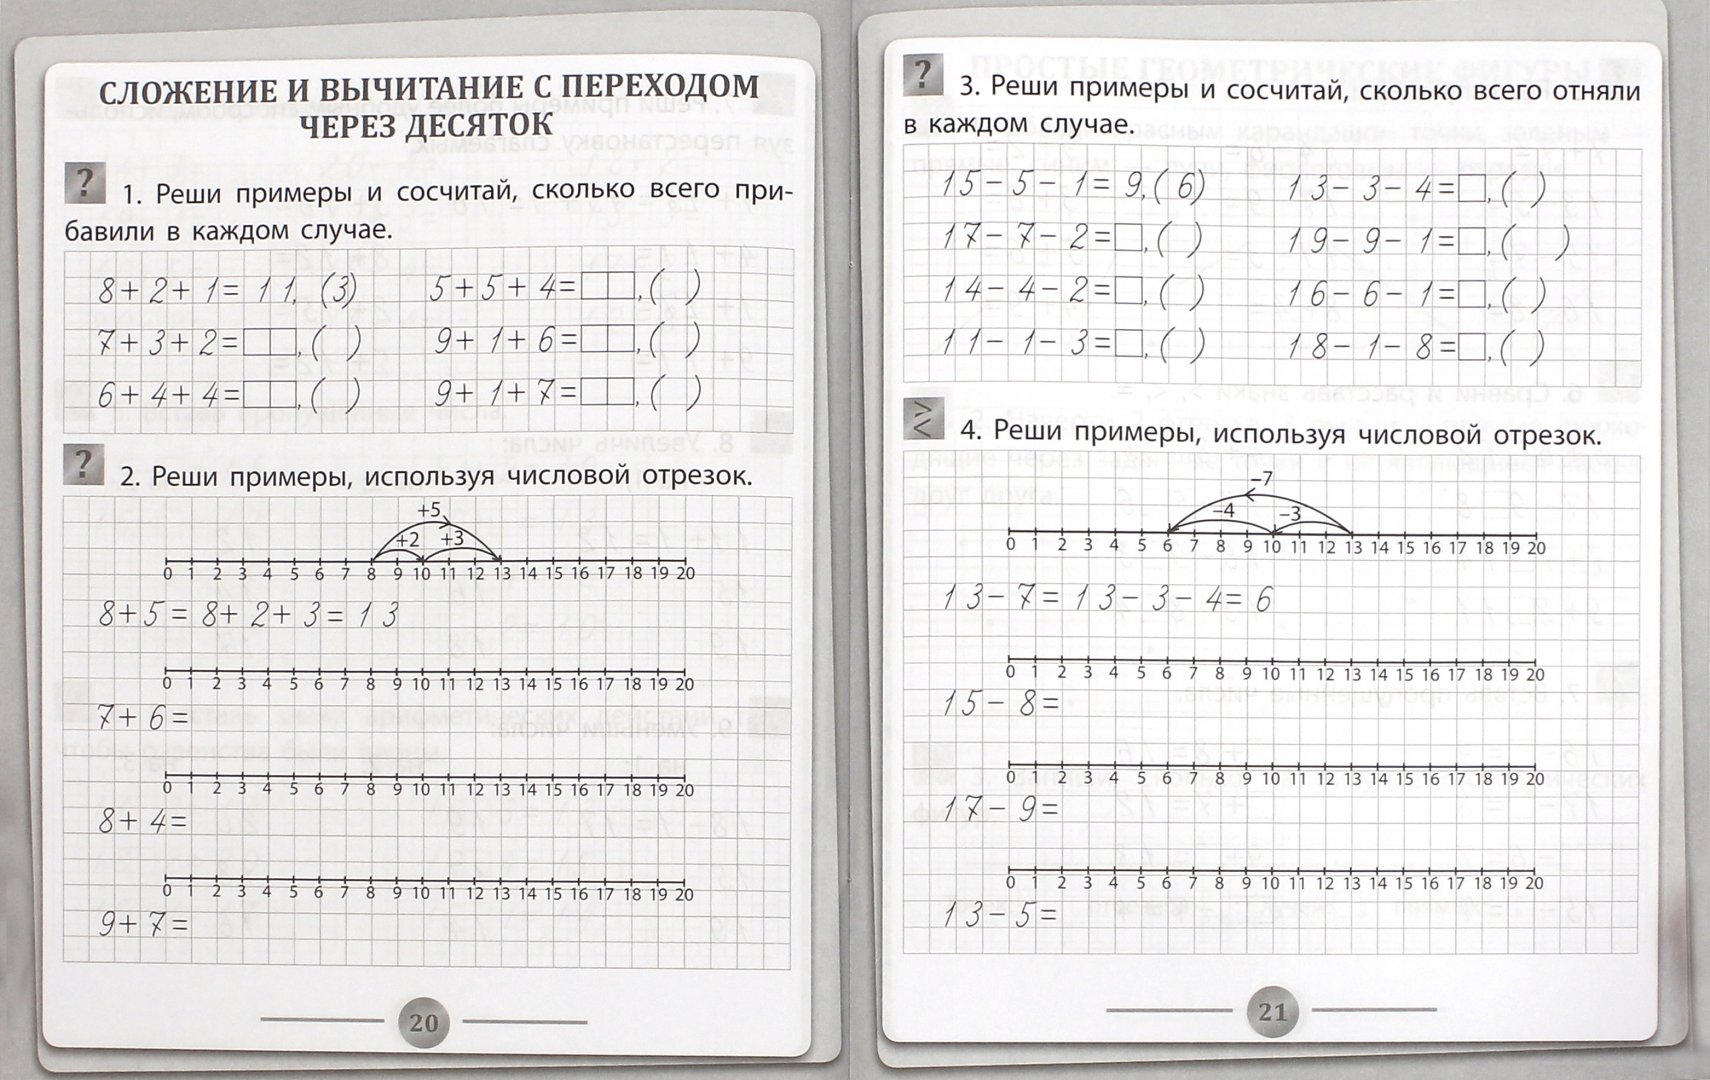 СЛОЖЕНИЕ И ВЫЧИТАНИЕ С ПЕРЕХОДОМ
ЧЕРЕЗ ДЕСЯТОК
? 1. Реши примеры и сосчитай, сколько всего при-
бавили в каждом случае.
8+2+1=11, (3) 5+5+4=□□,( )
7+3+2=□□,( ) 9+1+6=□□,( )
6+4+4=□□,( ) 9+1+7=□□,( )
? 2. Реши примеры, используя числовой отрезок.
+5
+2 +3
0 1 2 3 4 5 6 7 8 9 10 11 12 13 14 15 16 17 18 19 20
8+5=8+2+3=13
0 1 2 3 4 5 6 7 8 9 10 11 12 13 14 15 16 17 18 19 20
7+6=
0 1 2 3 4 5 6 7 8 9 10 11 12 13 14 15 16 17 18 19 20
8+4=
0 1 2 3 4 5 6 7 8 9 10 11 12 13 14 15 16 17 18 19 20
9+7=
20
? 3. Реши примеры и сосчитай, сколько всего отняли
в каждом случае.
15-5-1=9,(6) 13-3-4=□,( )
17-7-2=□,( ) 19-9-1=□,( )
14-4-2=□,( ) 16-6-1=□,( )
11-1-3=□,( ) 18-1-8=□,( )
>
< 4. Реши примеры, используя числовой отрезок.
–7
–4 –3
0 1 2 3 4 5 6 7 8 9 10 11 12 13 14 15 16 17 18 19 20
13-7=13-3-4=6
0 1 2 3 4 5 6 7 8 9 10 11 12 13 14 15 16 17 18 19 20
15-8=
0 1 2 3 4 5 6 7 8 9 10 11 12 13 14 15 16 17 18 19 20
17-9=
0 1 2 3 4 5 6 7 8 9 10 11 12 13 14 15 16 17 18 19 20
13-5=
21